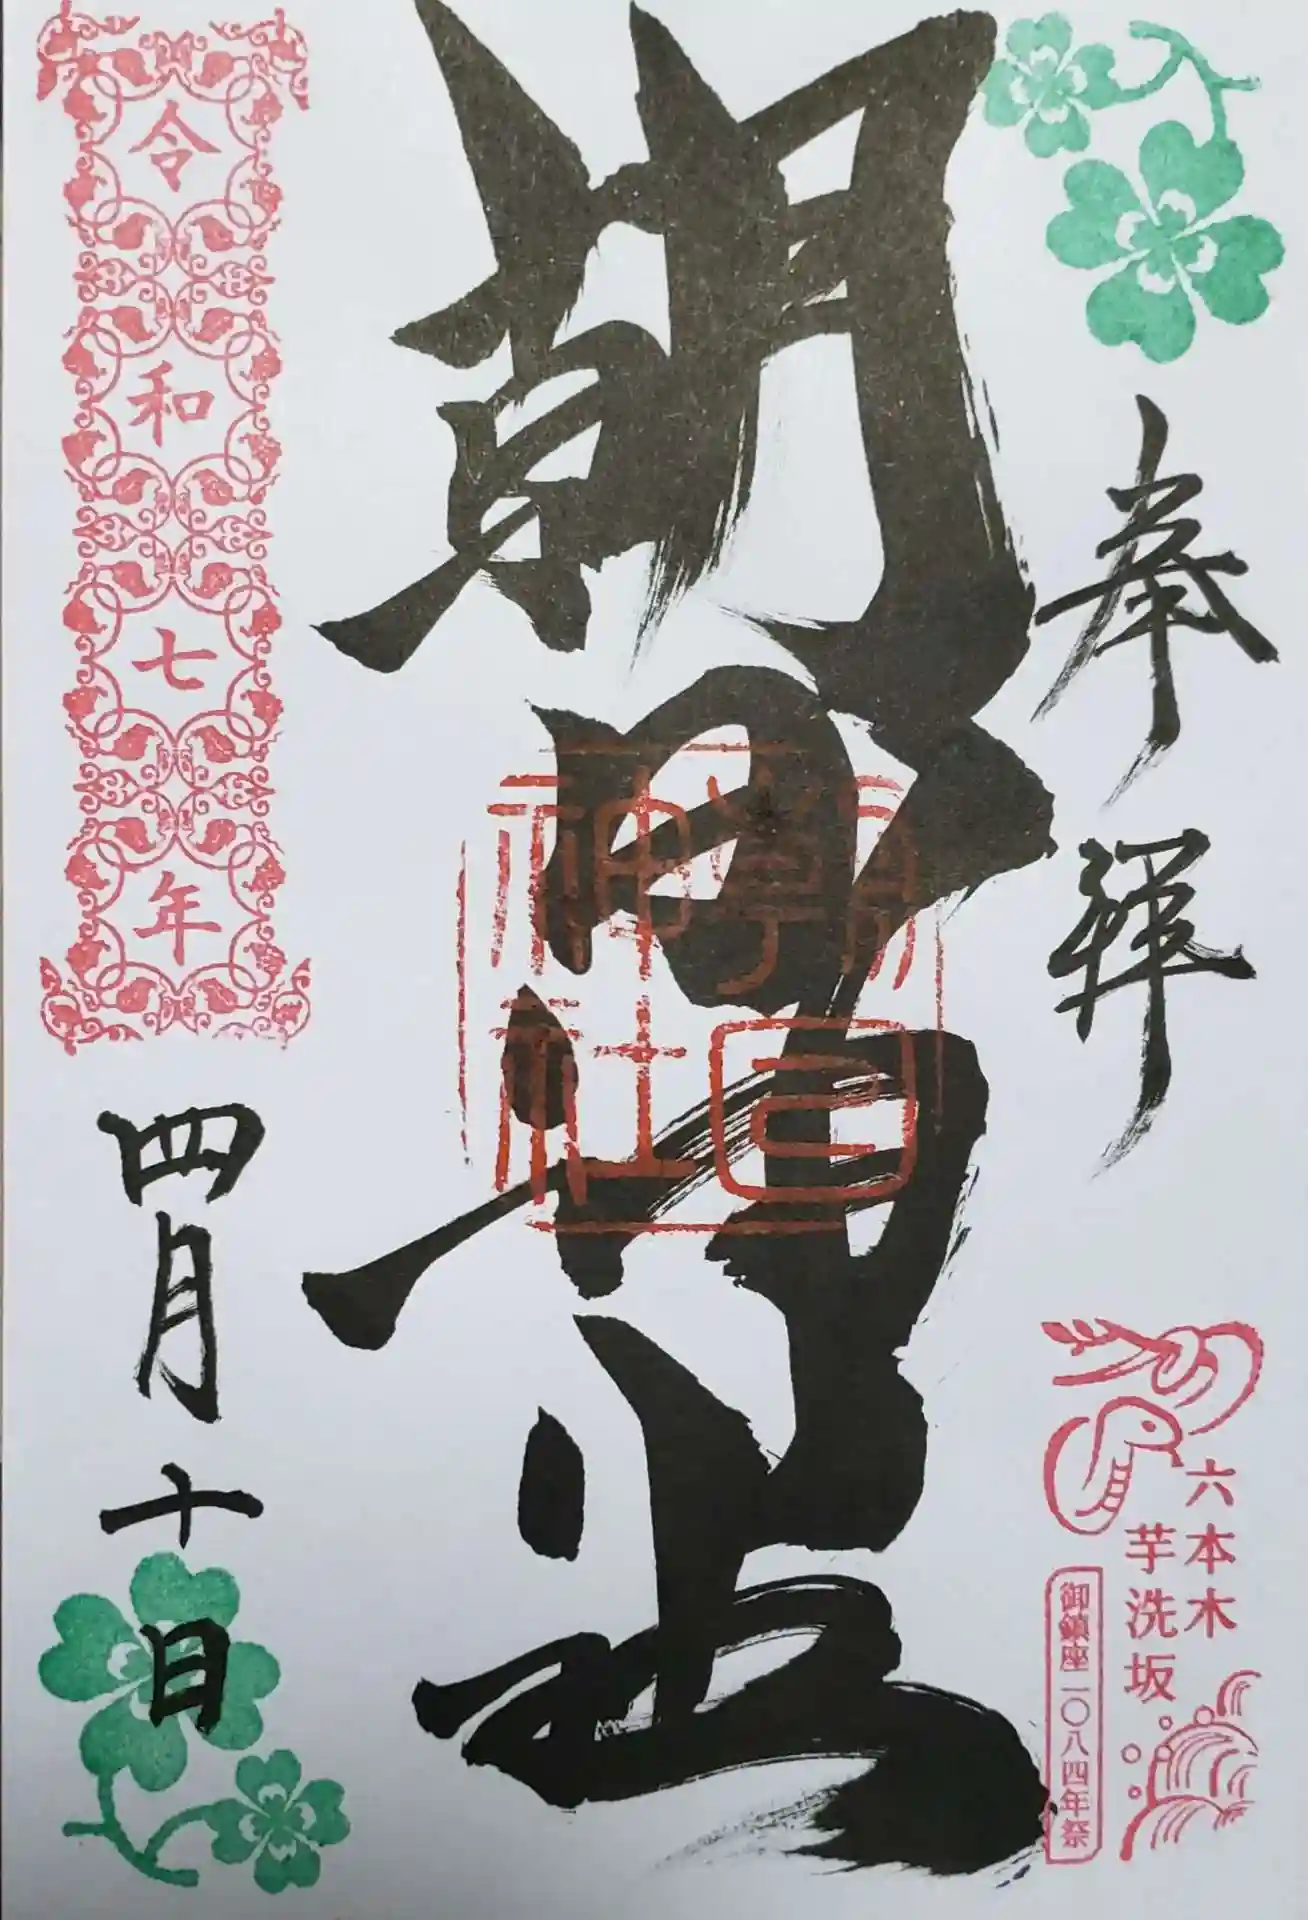 奉拝
六本木
芋洗坂
御鎮座一〇八四年祭
朝日神社
朝日神社
令和七年
四月十日